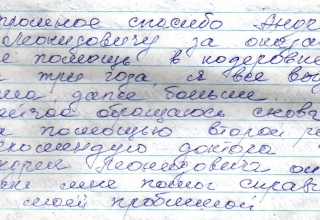 громное спасибо Андр
Леонидовичу за оказан
е помощь в кодировке
а три года я все вы
ила даже больше.
ейчас обращаюсь снова
а помощью второй р
екомендую доктора
ндрея Леонидовича он
не мне помог справ
с моей проблемой